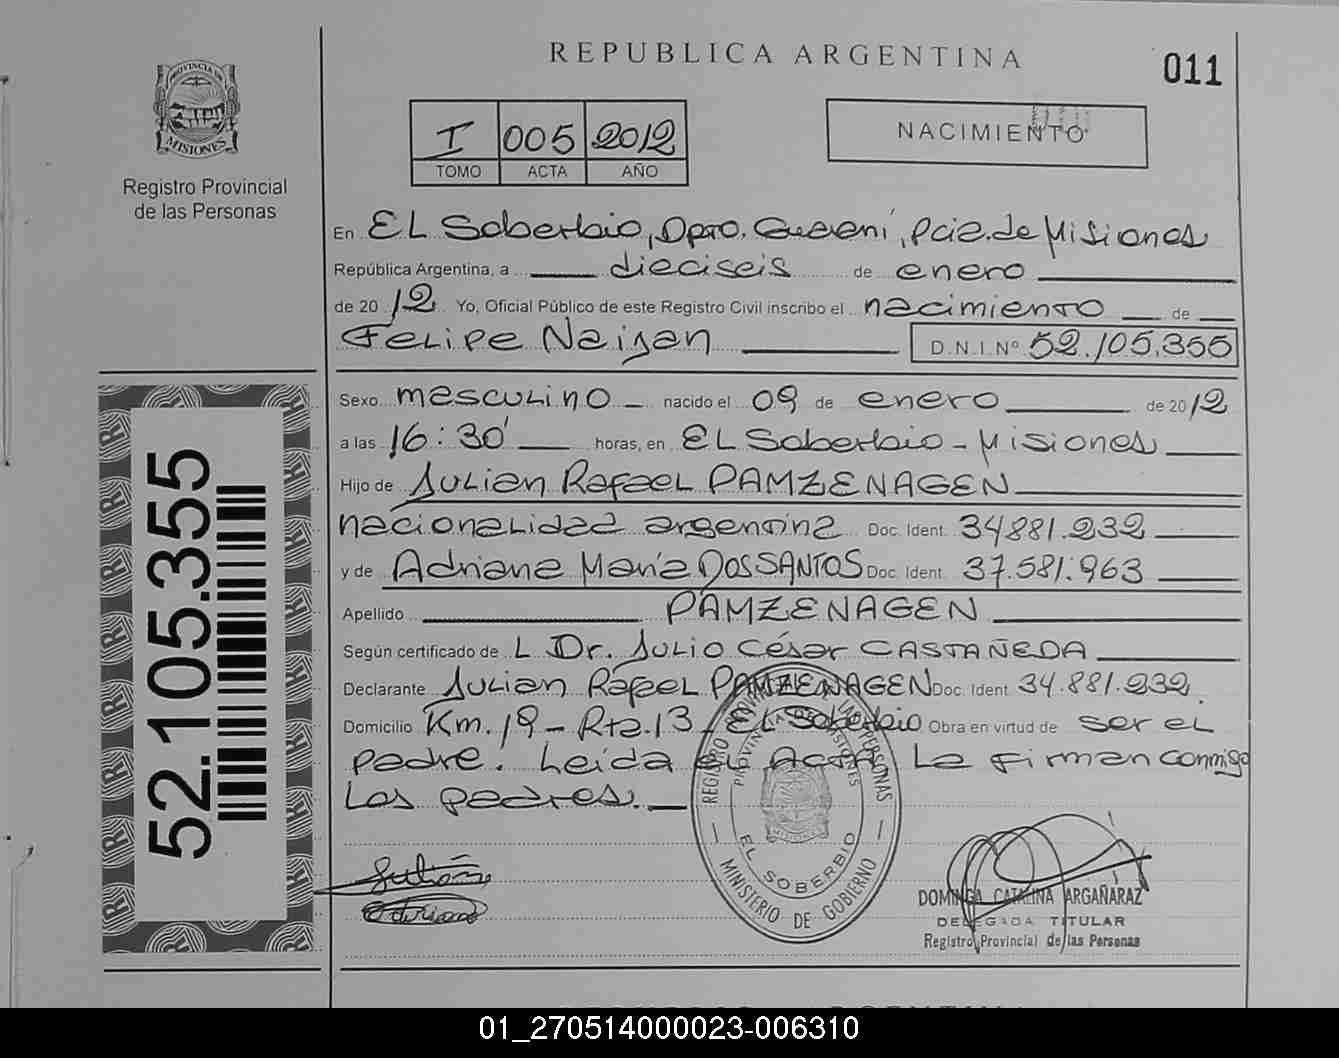 REPUBLICA ARGENTINA
011
PROVINCIA DE MISIONES
Registro Provincial
de las Personas
I 005 2012
TOMO ACTA AÑO
NACIMIENTO
En EL Soberbio, Dpto. Guaraní, Pcia. de Misiones
República Argentina, a dieciseis de enero
de 2012 Yo, Oficial Público de este Registro Civil inscribo el nacimiento de
Felipe Naijan D.N.I.Nº 52.105.355
Sexo masculino nacido el 09 de enero de 2012
a las 16:30' horas, en EL Soberbio - Misiones
Hijo de Julian Rafael PAMZENAGEN
nacionalidad argentina Doc. Ident. 34.881.232
y de Adriana María DOS SANTOS Doc. Ident. 37.581.963
Apellido PAMZENAGEN
Según certificado de L Dr. Julio César CASTAÑEDA
Declarante Julian Rafael PAMZENAGEN Doc. Ident. 34.881.232
Domicilio Km. 19 - Rta. 13 - EL Soberbio Obra en virtud de ser el
padre. Leida el Acta La firman conmigo
Los padres.
52.105.355
REGISTRO PROVINCIAL DE LAS PERSONAS
PROVINCIA DE MISIONES
MISIONES
EL SOBERBIO
MINISTERIO DE GOBIERNO
Julián
Adriana
DOMINGA CATALINA ARGAÑARAZ
DELEGADA TITULAR
Registro Provincial de las Personas
01_270514000023-006310